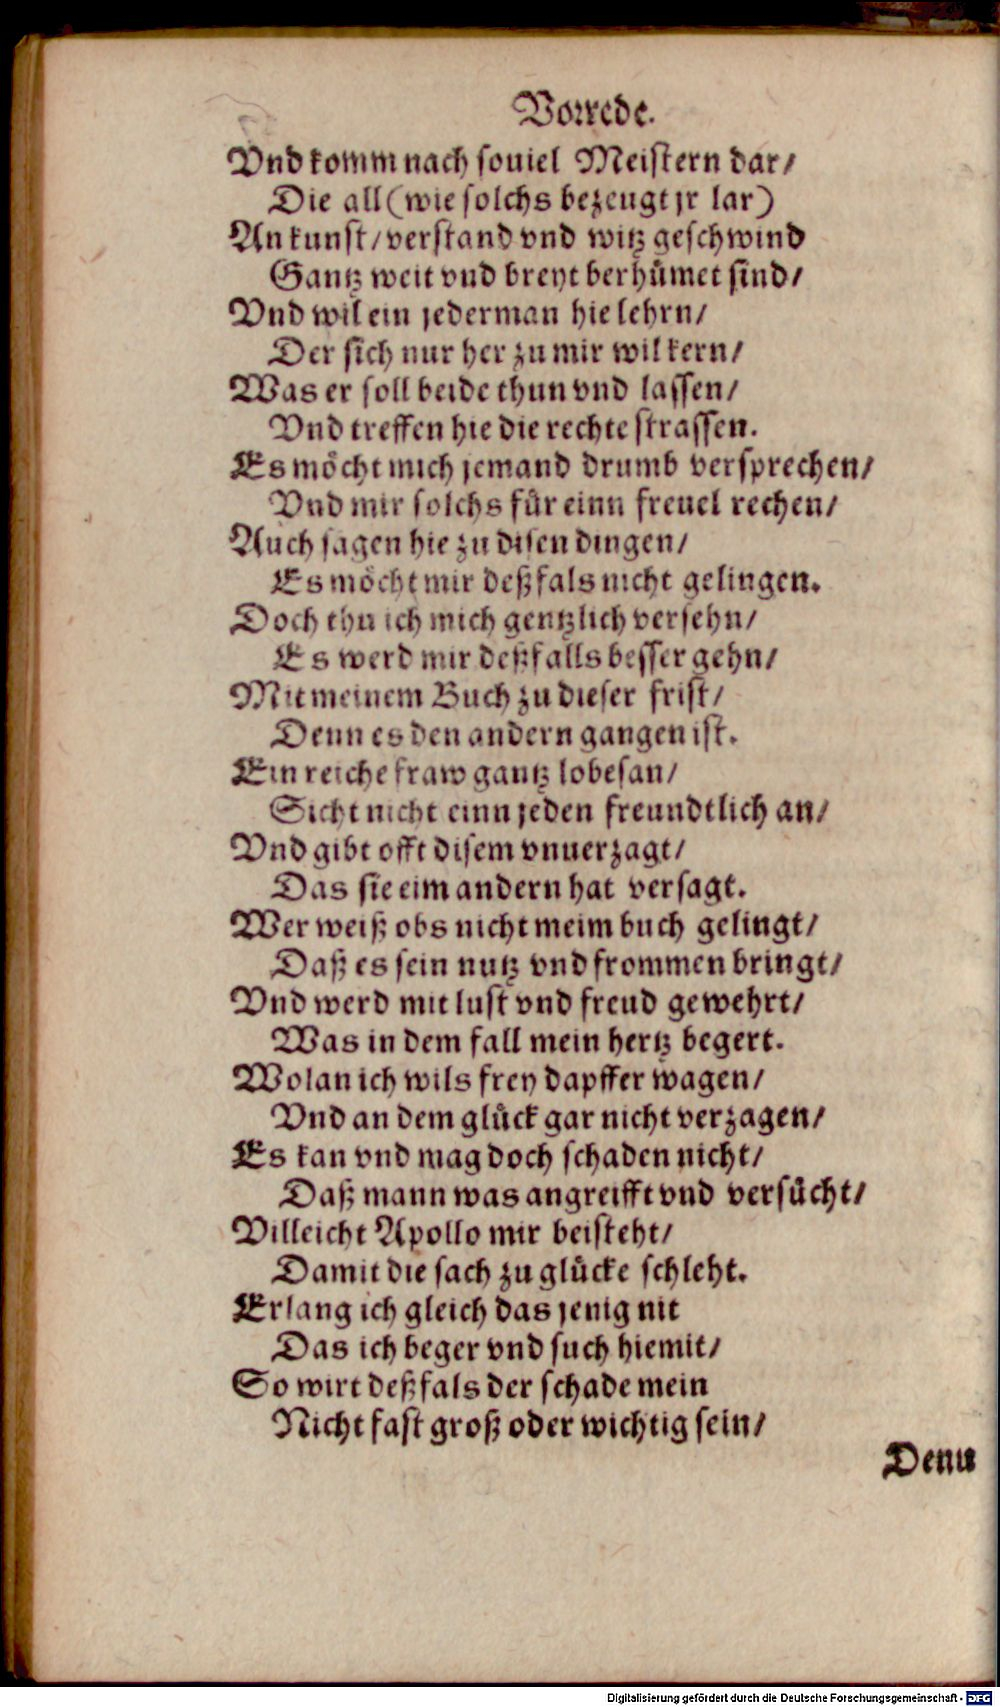 Vorrede.
Vnd komm nach souiel Meistern dar/
Die all (wie solchs bezeugt jr lar)
An kunst/ verstand vnd witz geschwind
Gantz weit vnd breyt berhümet sind/
Vnd wil ein jederman hie lehrn/
Der sich nur her zu mir wil kern/
Was er soll beide thun vnd lassen/
Vnd treffen hie die rechte strassen.
Es möcht mich jemand drumb versprechen/
Vnd mir solchs für einn freuel rechen/
Auch sagen hie zu disen dingen/
Es möcht mir deßfals nicht gelingen.
Doch thu ich mich gentzlich versehn/
Es werd mir deßfalls besser gehn/
Mit meinem Buch zu dieser frist/
Denn es den andern gangen ist.
Ein reiche fraw gantz lobesan/
Sicht nicht einn jeden freundtlich an/
Vnd gibt offt disem vnuerzagt/
Das sie eim andern hat versagt.
Wer weiß obs nicht meim buch gelingt/
Daß es sein nutz vnd frommen bringt/
Vnd werd mit lust vnd freud gewehrt/
Was in dem fall mein hertz begert.
Wolan ich wils frey dapffer wagen/
Vnd an dem glück gar nicht verzagen/
Es kan vnd mag doch schaden nicht/
Daß mann was angreifft vnd versücht/
Villeicht Apollo mir beisteht/
Damit die sach zu glücke schleht.
Erlang ich gleich das jenig nit
Das ich beger vnd such hiemit/
So wirt deßfals der schade mein
Nicht fast groß oder wichtig sein/
Denn
Digitalisierung gefördert durch die Deutsche Forschungsgemeinschaft - DFG